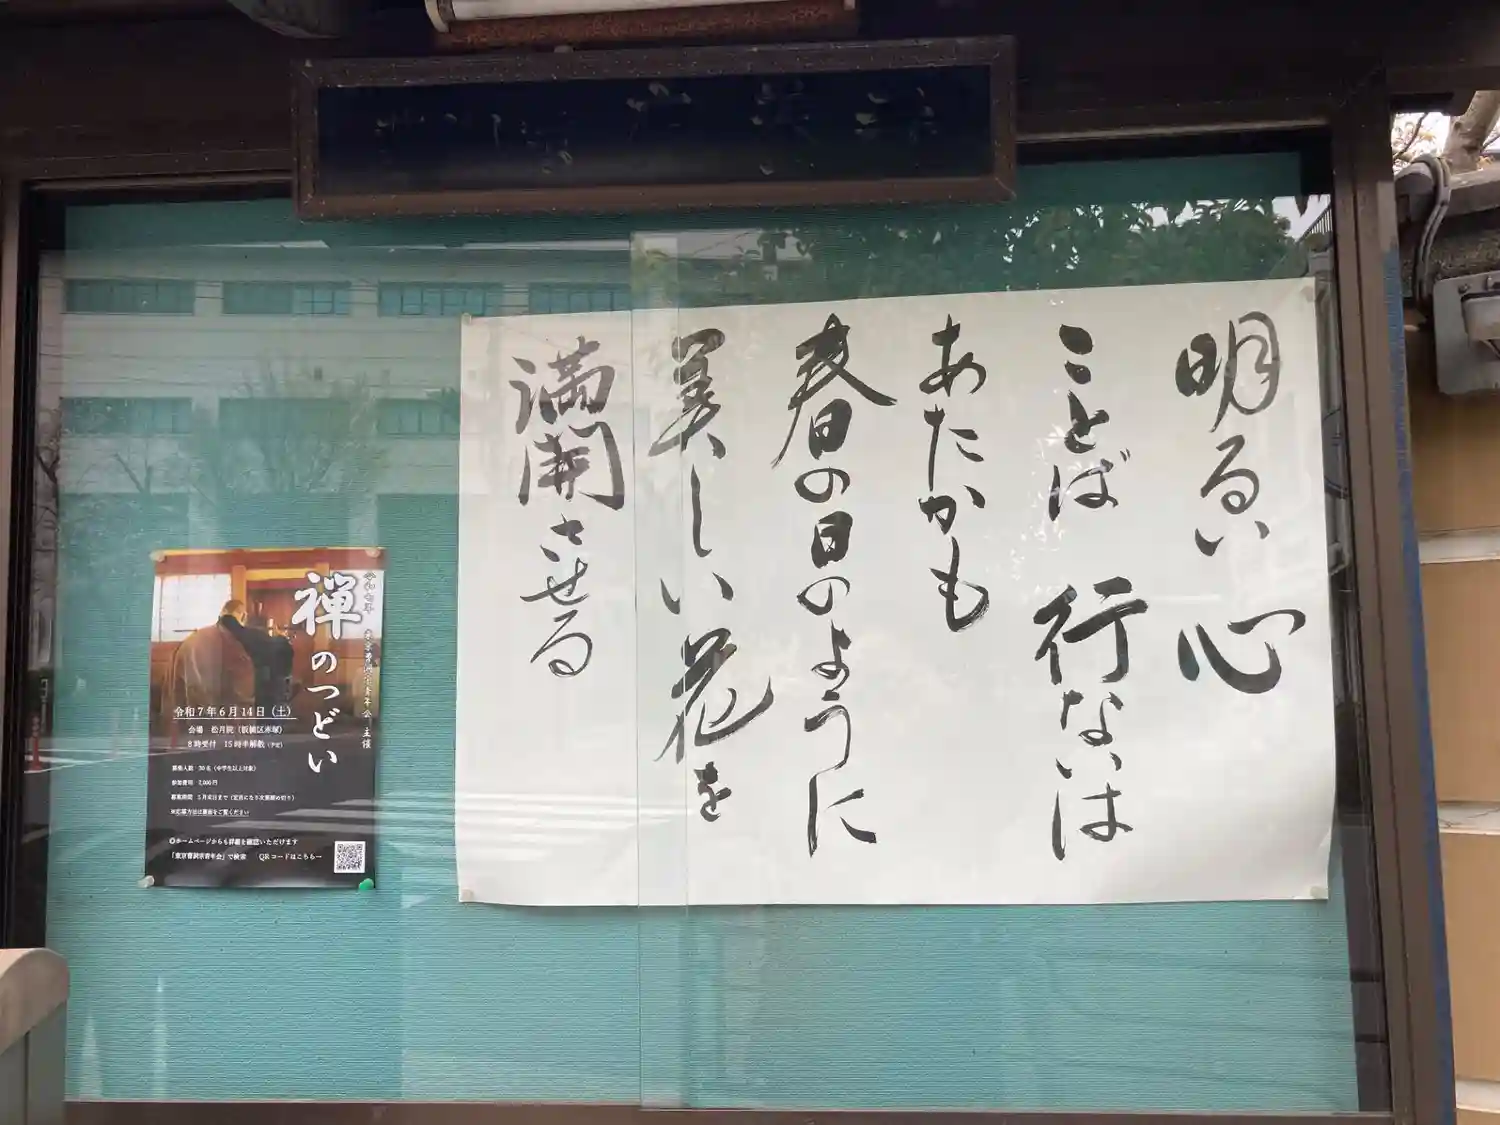 明るい 心
ことば 行ないは
あたかも
春の日のように
美しい花を
満開させる
令和七年 東京曹洞宗青年会 主催
禅のつどい
令和7年6月14日(土)
会場 松月院(板橋区赤塚)
8時受付 15時半解散(予定)
募集人数 30名(中学生以上対象)
参加費用 2,000円
募集期間 5月末日まで(定員になり次第締め切り)
※応募方法は裏面をご覧ください
◎ホームページからも詳細を確認いただけます
「東京曹洞宗青年会」で検索 QRコードはこちら→